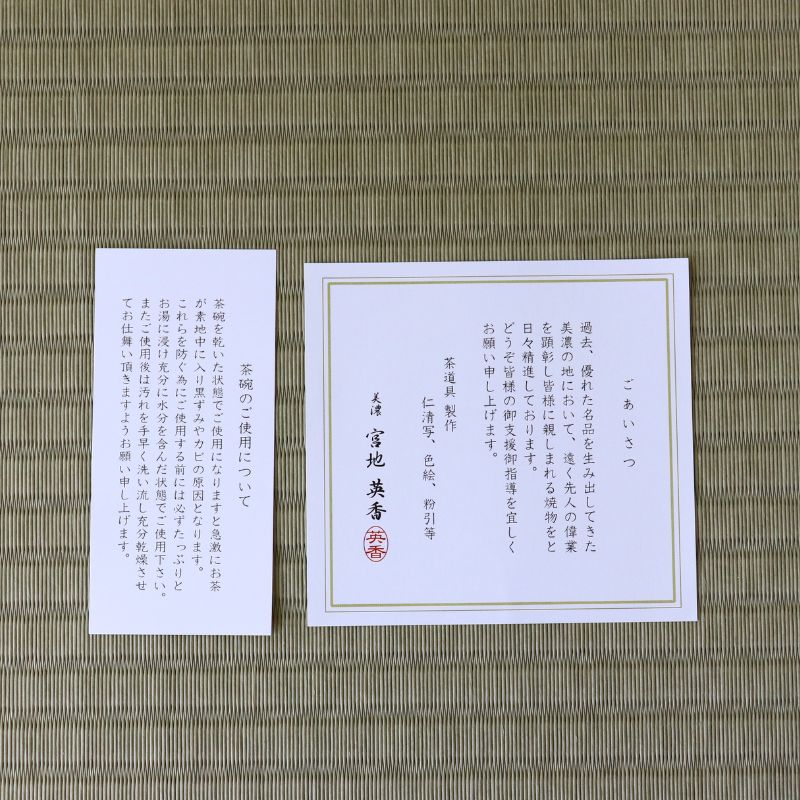 ごあいさつ
過去、優れた名品を生み出してきた
美濃の地において、遠く先人の偉業
を顕彰し皆様に親しまれる焼物をと
日々精進しております。
どうぞ皆様の御支援御指導を宜しく
お願い申し上げます。
茶道具 製作
仁清写、色絵、粉引等
美濃 宮地 英香
英香
茶碗のご使用について
茶碗を乾いた状態でご使用になりますと急激にお茶
が素地中に入り黒ずみやカビの原因となります。
これらを防ぐ為にご使用する前には必ずたっぷりと
お湯に浸け充分に水分を含んだ状態でご使用下さい。
またご使用後は汚れを手早く洗い流し充分乾燥させ
てお仕舞い頂きますようお願い申し上げます。